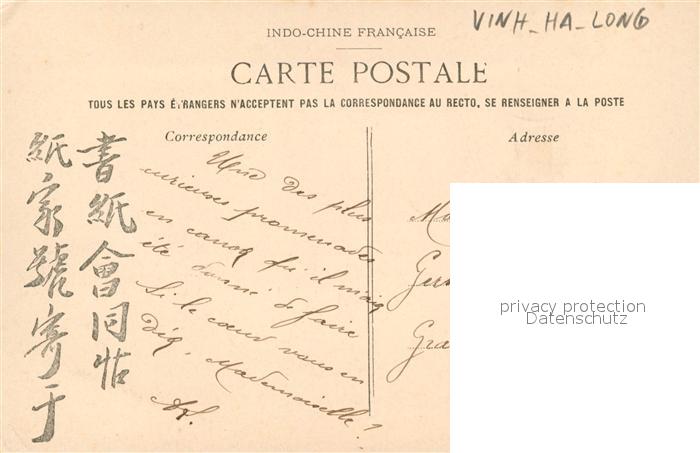 VINH_HA_LONG
INDO-CHINE FRANÇAISE
CARTE POSTALE
TOUS LES PAYS ÉTRANGERS N'ACCEPTENT PAS LA CORRESPONDANCE AU RECTO, SE RENSEIGNER A LA POSTE
Correspondance
Adresse
書紙會同帖
紙家號寄于
Une des plus
curieuses promenades
en canot qu'il m'aig
été donné de faire
Si le cœur vous en
dig, Mademoiselle?
Ma
Ger
Gra
privacy protection
Datenschutz